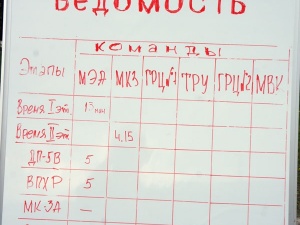 ВЕДОМОСТЬ
КОМАНДЫ
Этапы МЭА МКЗ ГРЦ№1 ТРУ ГРЦ№2 МВК
Время I эт. 13 мин
Время II эт. 4.15
ДП-5В 5
ВПХР 5
МК-3А —